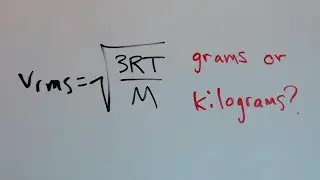 vrms=√3RT/M
grams or
kilograms?